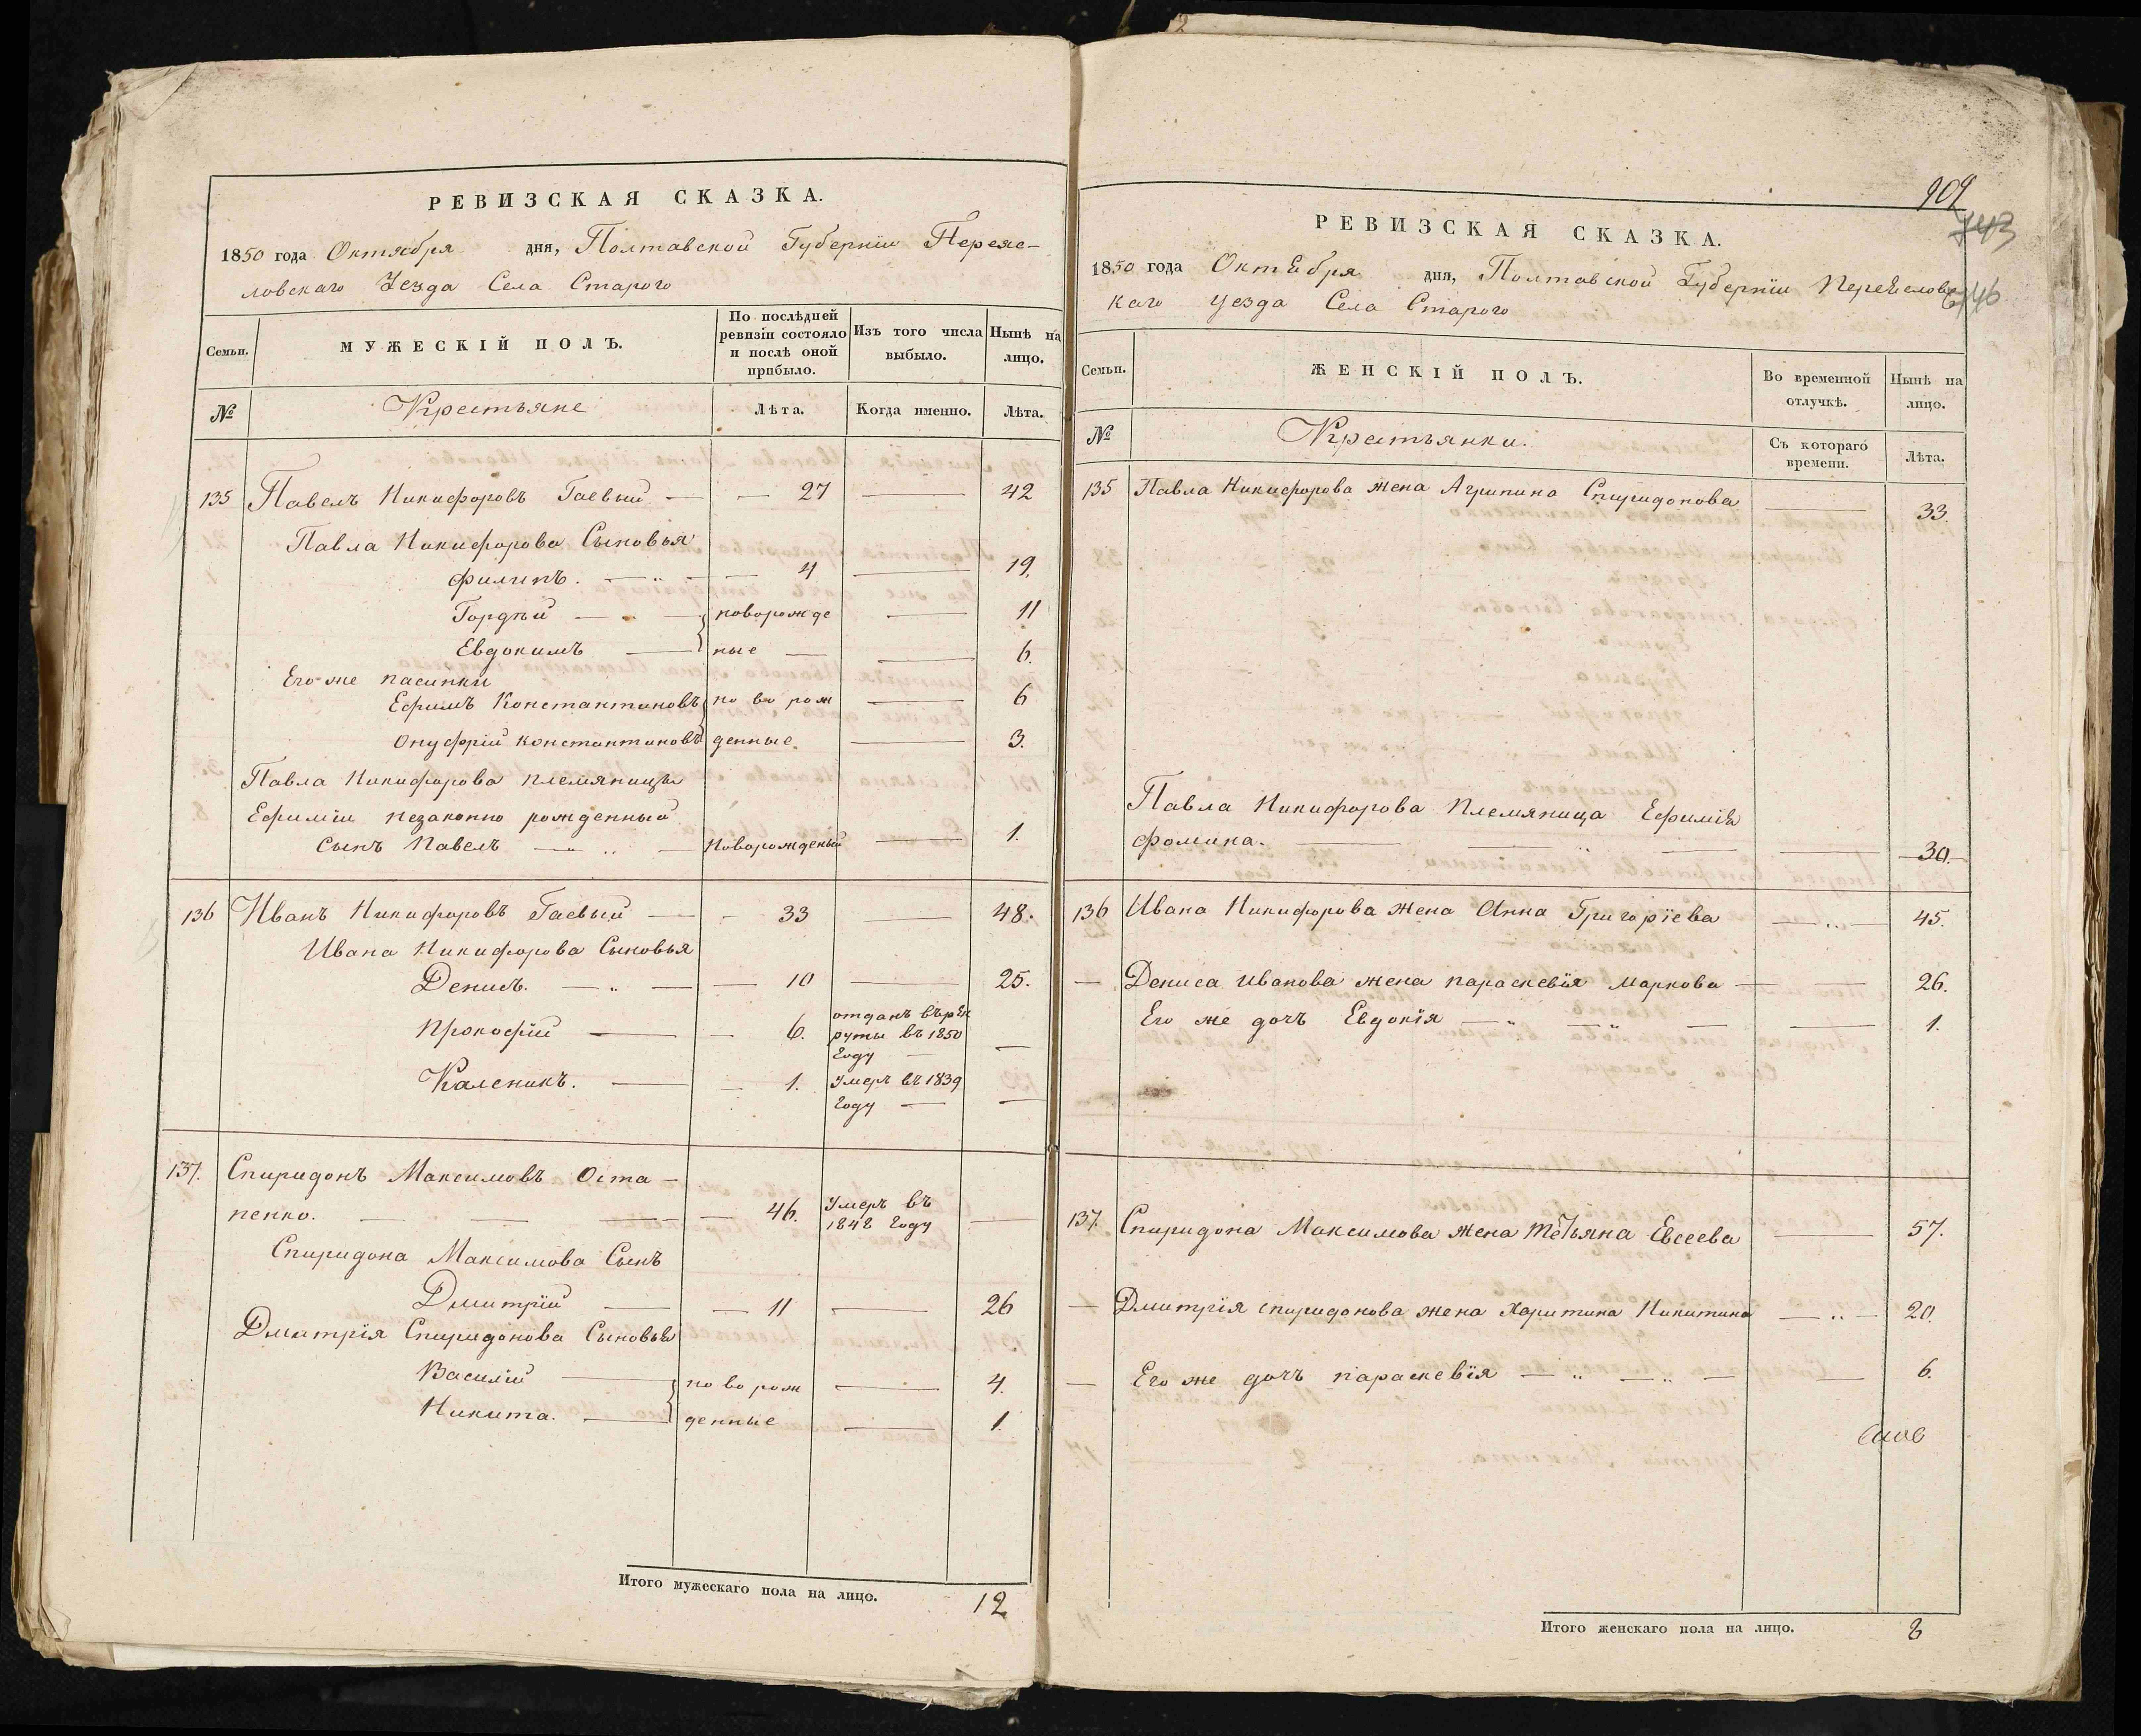 РЕВИЗСКАЯ СКАЗКА.
1850 года Октября дня, Полтавской Губерніи Переяс-
ловскаго Уезда Села Старого
Семьи.
МУЖЕСКІЙ ПОЛЪ.
По послѣдней ревизіи состояло и послѣ оной прибыло.
Изъ того числа выбыло.
Нынѣ на лицо.
№
Крестьяне
Лѣта.
Когда именно.
Лѣта.
135 Павелъ Никифоровъ Гаевый — — 27 — 42
Павла Никифорова Сыновья
Филипъ. — — 4 — 19.
Гордѣй — новорожде — 11
Евдокимъ — ные — — 6.
Его же пасинки
Ефимъ Константиновъ но во рож — 6
Онуфрій Константиновъ денные. — 3.
Павла Никифорова племяницы
Ефиміи незаконно рожденный
Сынъ Павелъ — Новорожденый — 1.
136 Иванъ Никифоровъ Гаевый — - 33 — 48.
Ивана Никифорова Сыновья
Денисъ. — — 10 — 25.
отданъ въ рек
Прокофій — — 6. руты въ 1850
Году — —
Каленикъ. — — 1. Умеръ въ 1839
Году — —
137. Спиридонъ Максимовъ Оста-
пенко. — — — 46. Умеръ въ
1848 Году —
Спиридона Максимова Сынъ
Дмитрій — — 11 — 26
Дмитрія Спиридонова Сыновья
Василій — но во рож — 4.
Никита. — денные — 1.
Итого мужескаго пола на лицо. 12
909
743
746
РЕВИЗСКАЯ СКАЗКА.
1850 года Октября дня, Полтавской Губерніи Переяслове
каго Уезда Села Старого
Семьи.
ЖЕНСКІЙ ПОЛЪ.
Во временной отлучкѣ.
Нынѣ на лицо.
№
Крестьянки.
Съ котораго времени.
Лѣта.
135 Павла Никифорова жена Агрипина Спиридонова — 33.
Павла Никифорова Племяница Ефимія
Фомина. — — — — 30.
136 Ивана Никифорова Жена Анна Григорїева — 45.
— Дениса Иванова жена параскевїя Маркова — — 26.
Его же дочъ Евдокїя — — — — 1.
137. Спиридона Максимова жена Тетьяна Евсеева — 57.
— Дмитрїя Спиридонова жена Харитина Никитина — 20.
— Его же дочъ параскевїя — — — — 6.
Итого женскаго пола на лицо. 8